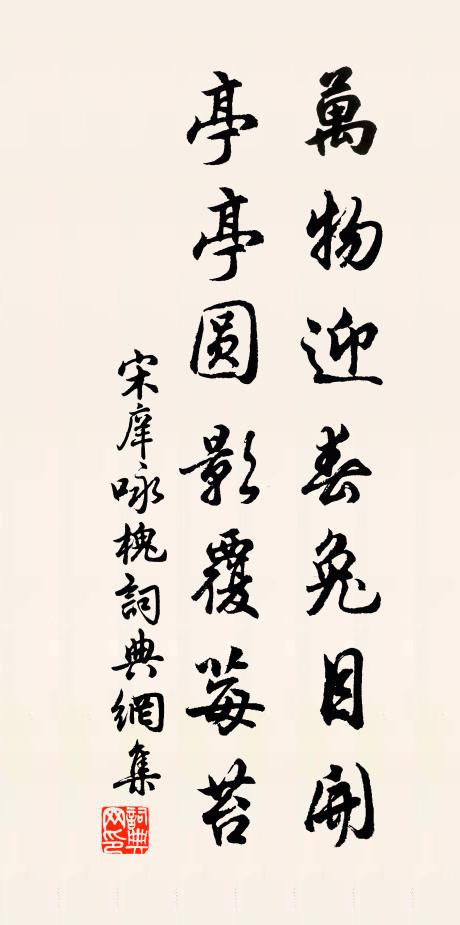 萬物迎春兔目開
亭亭圓影覆莓苔
宋庠咏槐詞典網集
詞典网印